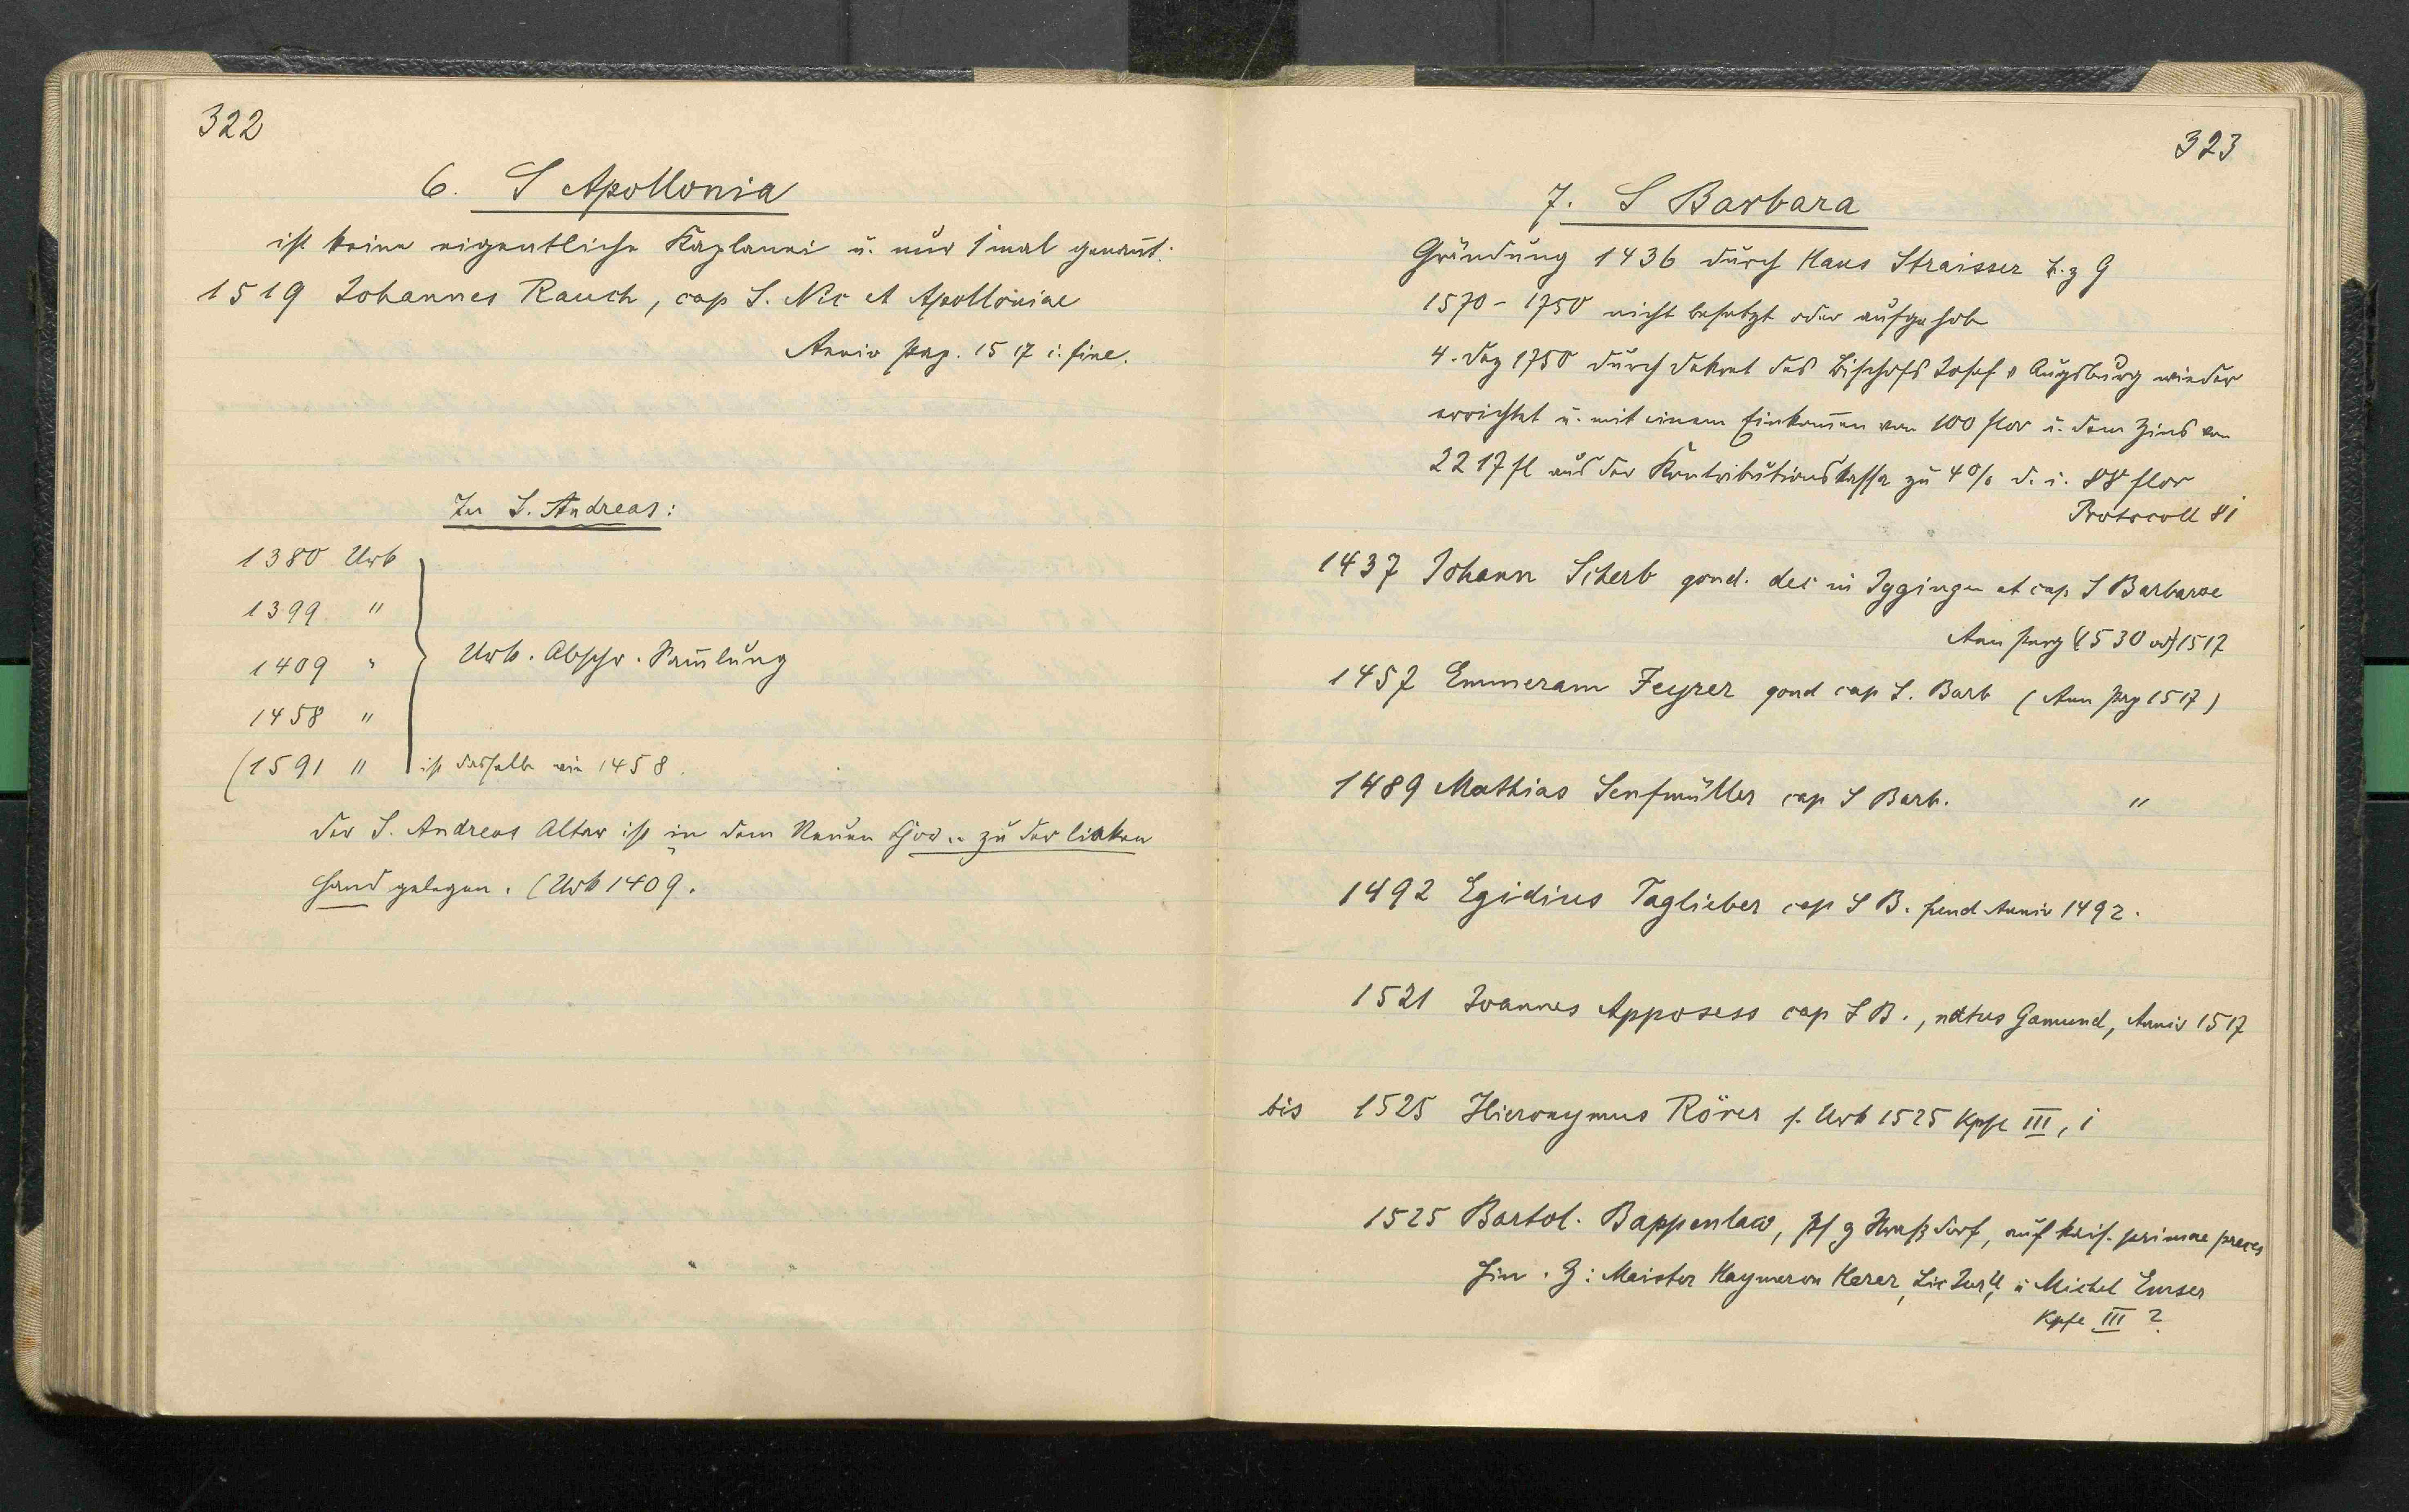 322
6. S Apollonia
ist keine eigentliche Kaplanei u. nur 1 mal genant:
1519 Johannes Rauch, cap S. Nic et Apolloniae
Anniv perg. 1517 i. fine.
Zu S. Andreas:
1380 Urk
1399 "
1409 "
1458 "
Urk. Abschr. Samlung
(1591 " ist dasselbe wie 1458.
der S. Andreas Altar ist in dem Neuen Chor .. zu der linken
Hand gelegen. (Urk 1409.
323
7. S Barbara
Gründung 1436 durch Hans Straisser b. z G
1570 - 1750 nicht besetzt oder aufgehob
4. Dez 1750 durch Dekret des Bischofs Josef v Augsburg wieder
errichtet u. mit einem Einkomen von 100 flor u. dem Zins von
2217 fl aus der Kontributionskassa zu 4% d. i. 88 flor
Protocoll 81
1437 Johann Scherb gond. dec in Iggingen et cap S Barbarae
Ann perg (1530 od) 1517
1457 Emmeram Feyrer gond cap S. Barb (Ann perg 1517)
1489 Mathias Senfmüller cap S Barb. "
1492 Egidius Taglieber cap S B. fund Anniv 1492.
1521 Joannes Apposess cap S B., natus Gamund, Anniv 1517
bis 1525 Hieronymus Rörer s. Urk 1525 Kpfe III, 1
1525 Bartol. Bappenlaw, Pf z Straßdorf, auf kais. primae preces
hin. Z: Meister Haymeron Kerer, Lic u Michel Emser
Kpfe III 2